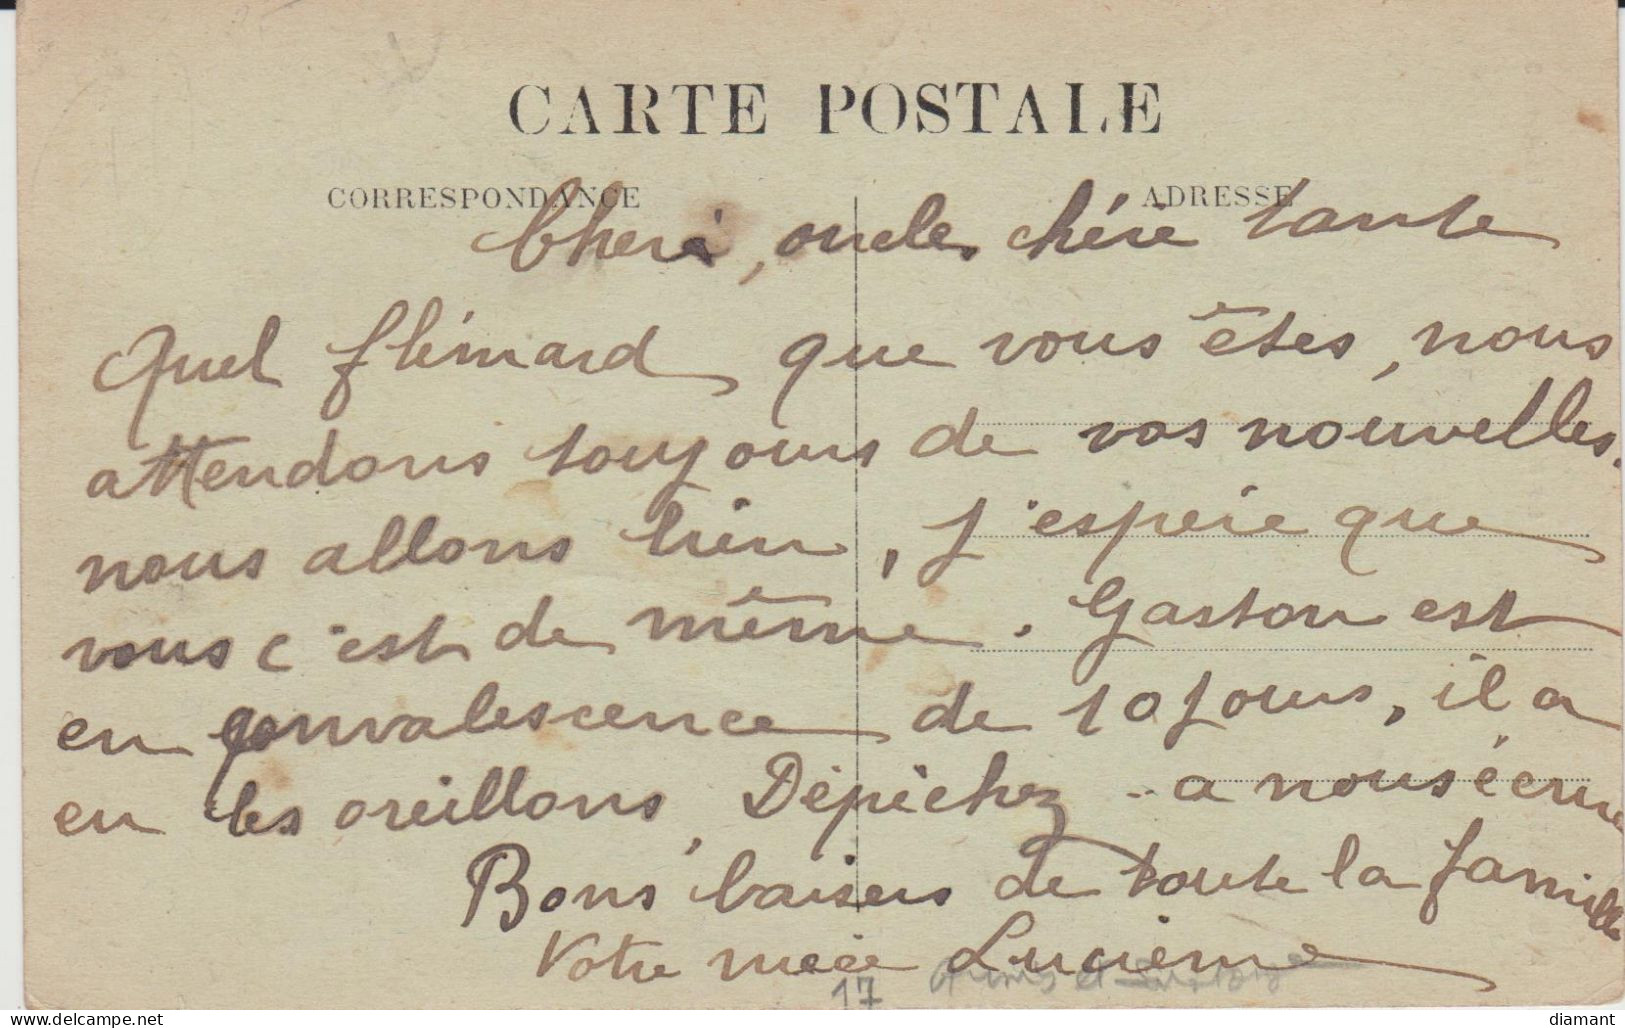 CARTE POSTALE
CORRESPONDANCE ADRESSE
Cheri, oncle, chérie tante
Quel flémard que vous êtes, nous
attendons toujours de vos nouvelles.
nous allons bien, j'espére que
vous c'est de même. Gaston est
en convalescence de 10 jours, il a
eu les oreillons, Dépêchez - a nous écrire
Bons baisers de toute la famille
Votre nièce Lucienne
17
diamant